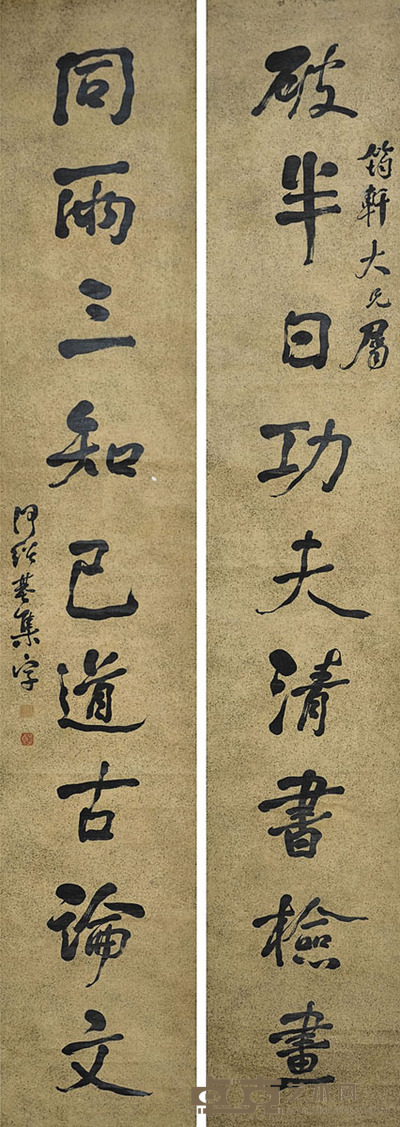 破半日功夫清書檢畫
筠軒大兄屬
同兩三知己道古論文
何紹基集字